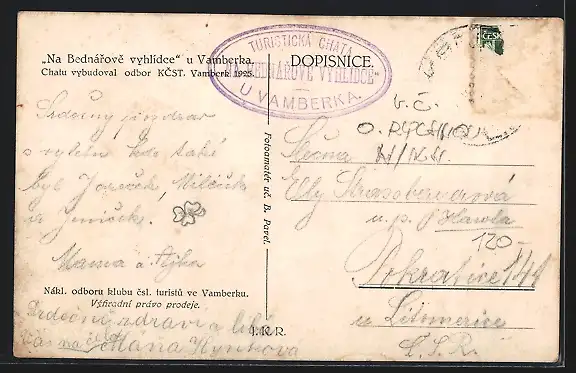 „Na Bednářově vyhlídce" u Vamberka.
Chatu vybudoval odbor KČST. Vamberk 1925.
TURISTICKÁ CHATA
„NA BEDNÁŘOVĚ VYHLÍDCE"
U VAMBERKA.
DOPISNICE.
ČESK
Srdečný pozdrav
s výletu kde také
byl Jozeček, Mileček
a Jeníček.
Mama a
Nákl. odboru klubu čsl. turistů ve Vamberku.
Výhradní právo prodeje.
Srdečni zdravi a líbá
Vás Mařa Hynkova
Fotoamatér uč. B. Pavel.
J.K.R.
v. č.
O. RYCHNOV
N/KN.
Slečna
Ely
u. p.
120-
Pokratice 144
u Litoměřice
Č. S. R.